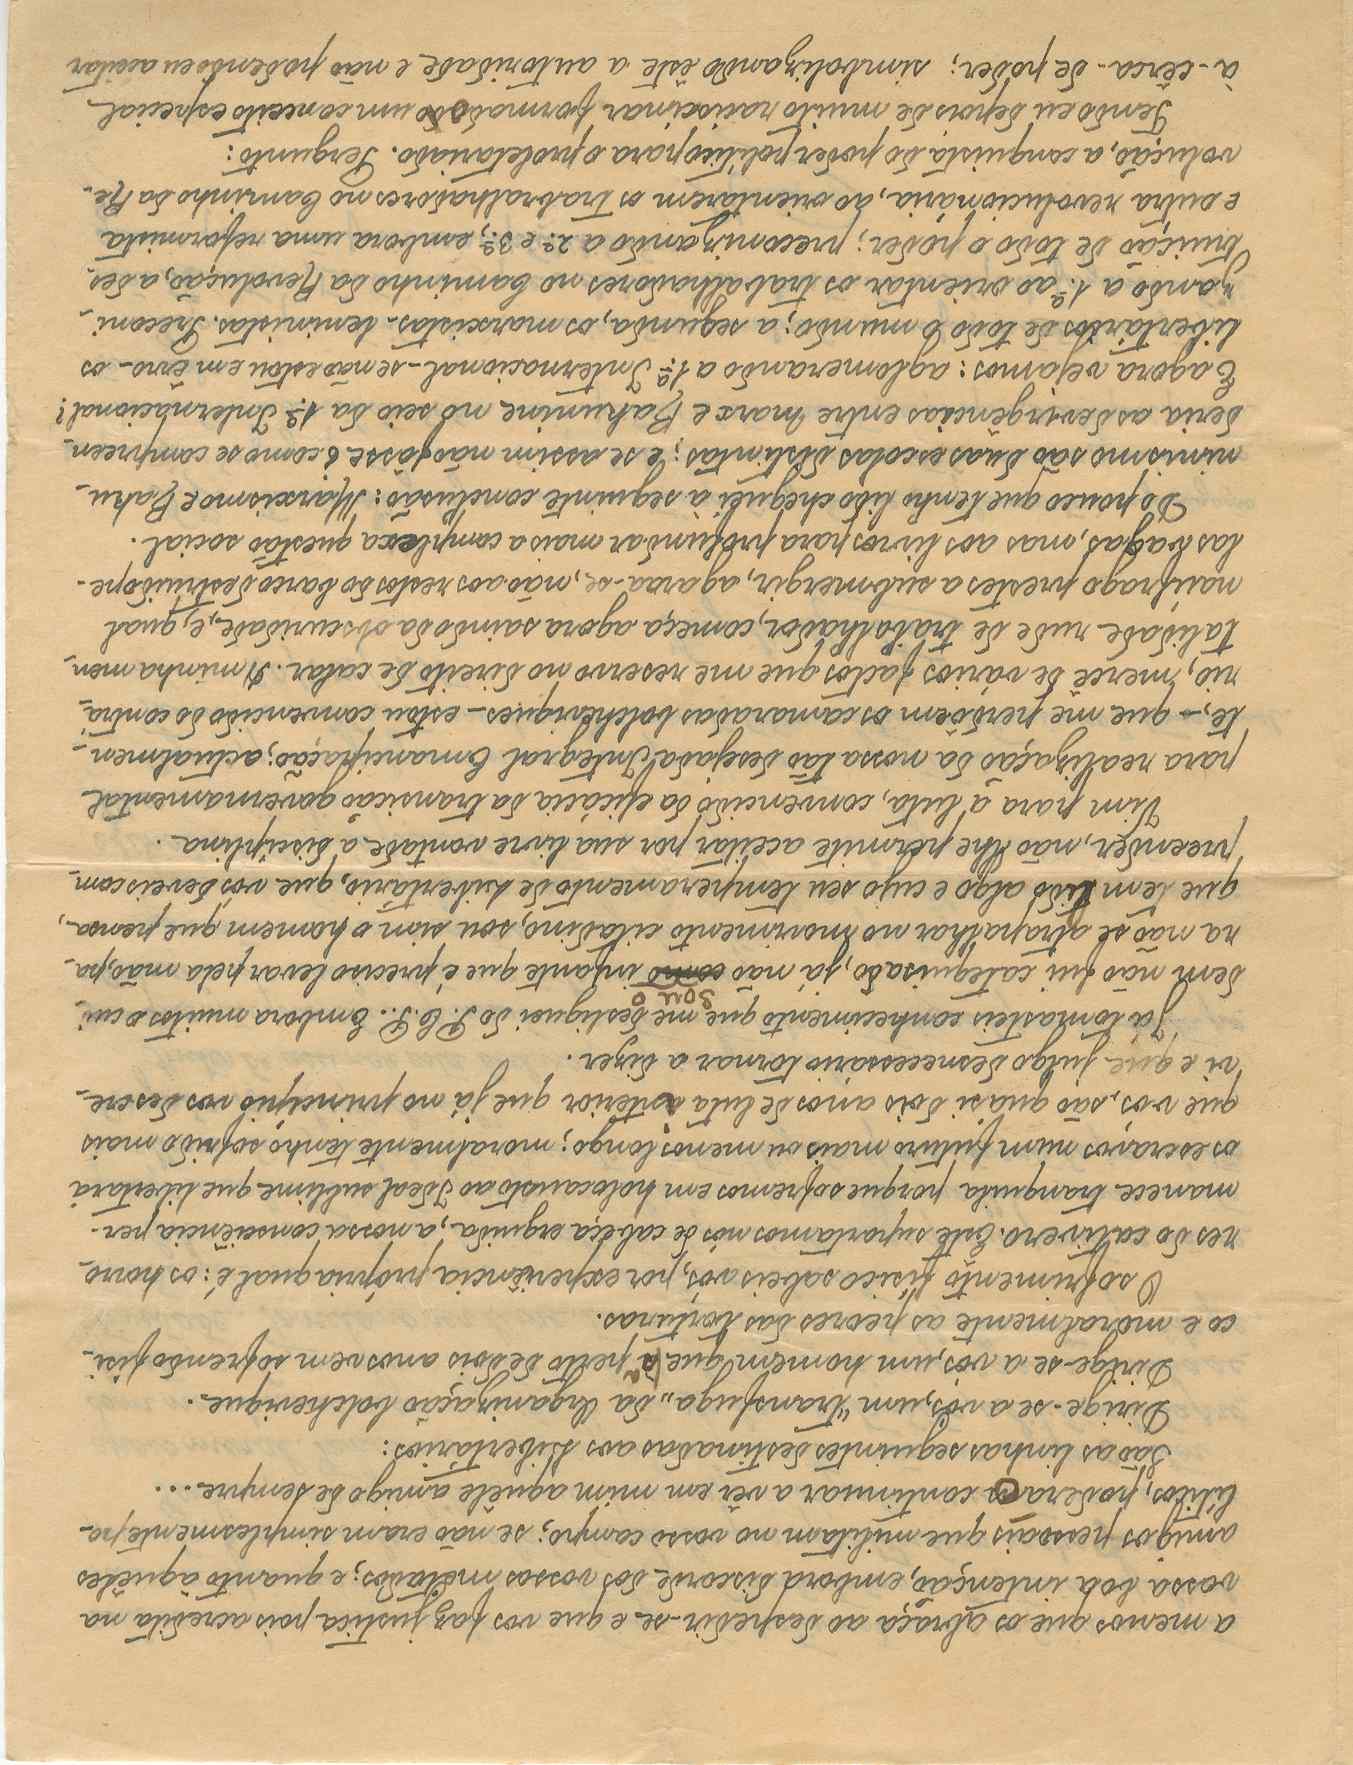 a menos que os abraça ao despedir-se e que vos faz justiça pois acredita na
vossa boa intenção, embora discorde dos vossos métodos; e quanto àquêles
amigos pessoais que militam no vosso campo; se não eram simplesmente po-
líticos, poderão continuar a vêr em mim aquêle amigo de sempre...
São as linhas seguintes destinadas aos Libertários:
Dirige-se a vós, um "transfuga" da Organização bolchevique.
Dirige-se a vós, um homem que há perto de dois anos vem sofrendo físi-
co e moralmente as peores das torturas.
O sofrimento físico sabeis vós, por experiência própria qual é: os horro-
res do cativero. Este suportamos nós de cabeça erguida, a nossa consciência per-
manece tranquila porque sofremos em holocausto ao Ideal sublime que libertará
os escravos num futuro mais ou menos longo; moralmente tenho sofrido mais
que vós, são quasi dois anos de luta interior que já no principio vos descre-
vi e que julgo desnecessário tornar a dizer.
Já tomasteis conhecimento que me desliguei do P.C.P.. Embora muitos o cui-
dem não fui catequisado, já não sou o infante que é preciso levar pela mão, pa-
ra não se atrapalhar no movimento citadino, sou sim o homem que pensa,
que tem lido algo e cujo seu temperamento de Libertário, que vós deveis com-
preender, não lhe permite aceitar por sua livre vontade a disciplina.
Vim para a luta, convencido da eficácia da transição governamental
para realização da nossa tão desejada Integral Emancipação; actualmen-
te, — que me perdoem os camaradas bolcheviques — estou convencido do contrá-
rio, mercê de vários factos que me reservo no direito de calar. A minha men-
talidade rude de trabalhador, começa agora saindo da obscuridade, e, qual
naúfrago prestes a submergir, agarra-se, não aos restos do barco destruido pe-
las vagas, mas aos livros para profundar mais a complexa questão social.
Do pouco que tenho lido cheguei á seguinte conclusão: Marxismo e Baku-
ninismo são duas escolas distintas; e se assim não fôsse como se compreen-
deria as devirgências entre Marx e Bakunine no seio da 1ª. Internacional?
E agora vejamos: aglomerando a 1ª. Internacional - se não estou em êrro - os
libertários de todo o mundo; a segunda, os marxistas-leninistas. Preconi-
zando a 1ª. ao orientar os trabalhadores no Caminho da Revolução, a des-
truição de todo o poder; preconizando a 2ª. e 3ª., embora uma reformista
e outra revolucionária, ao orientarem os trabalhadores no Caminho da Re-
volução, a conquista do poder político para o proletariado. Pergunto:
Tendo eu depois de muito raciocinar formado um conceito especial
à-cêrca-de poder; simbolizando êste a autoridade e não podendo eu aceitar